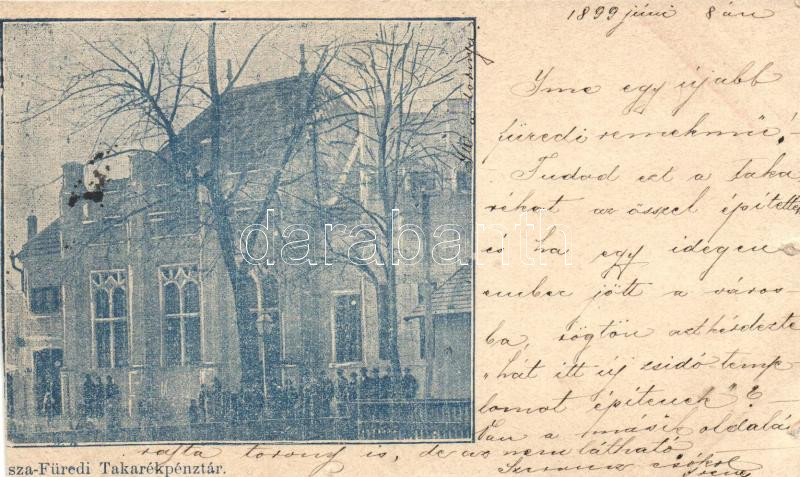 1899 júni 8án
Ime egy újabb
füredi remekmű!-
Tudod ezt a taka
rékot az ősszel építették
és ha egy idegen
ember jött a város-
ba, rögtön azt kérdezte
"hát itt új zsidó temp-
lomot építenek"?
Van a másik oldalá
rajta torony is, de az nem látható
csókol
Irene
darabanth
sza-Füredi Takarékpénztár.